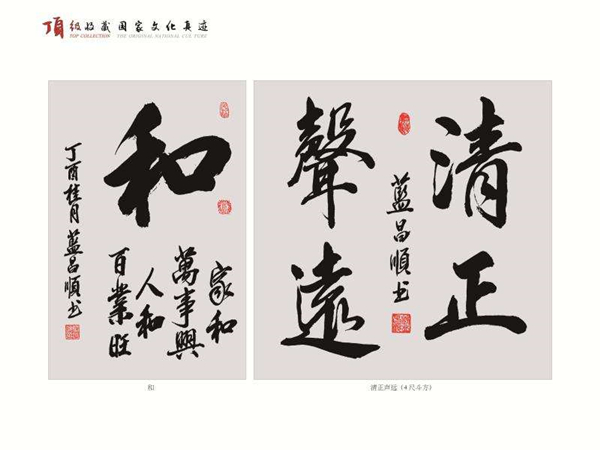 顶级收藏国家文化真迹
TOP COLLECTION THE ORIGINAL NATIONAL CULTURE
和
家和
萬事興
人和
百業旺
丁酉桂月藍昌順书
清正
聲遠
藍昌順书
和
清正声远（4尺斗方）